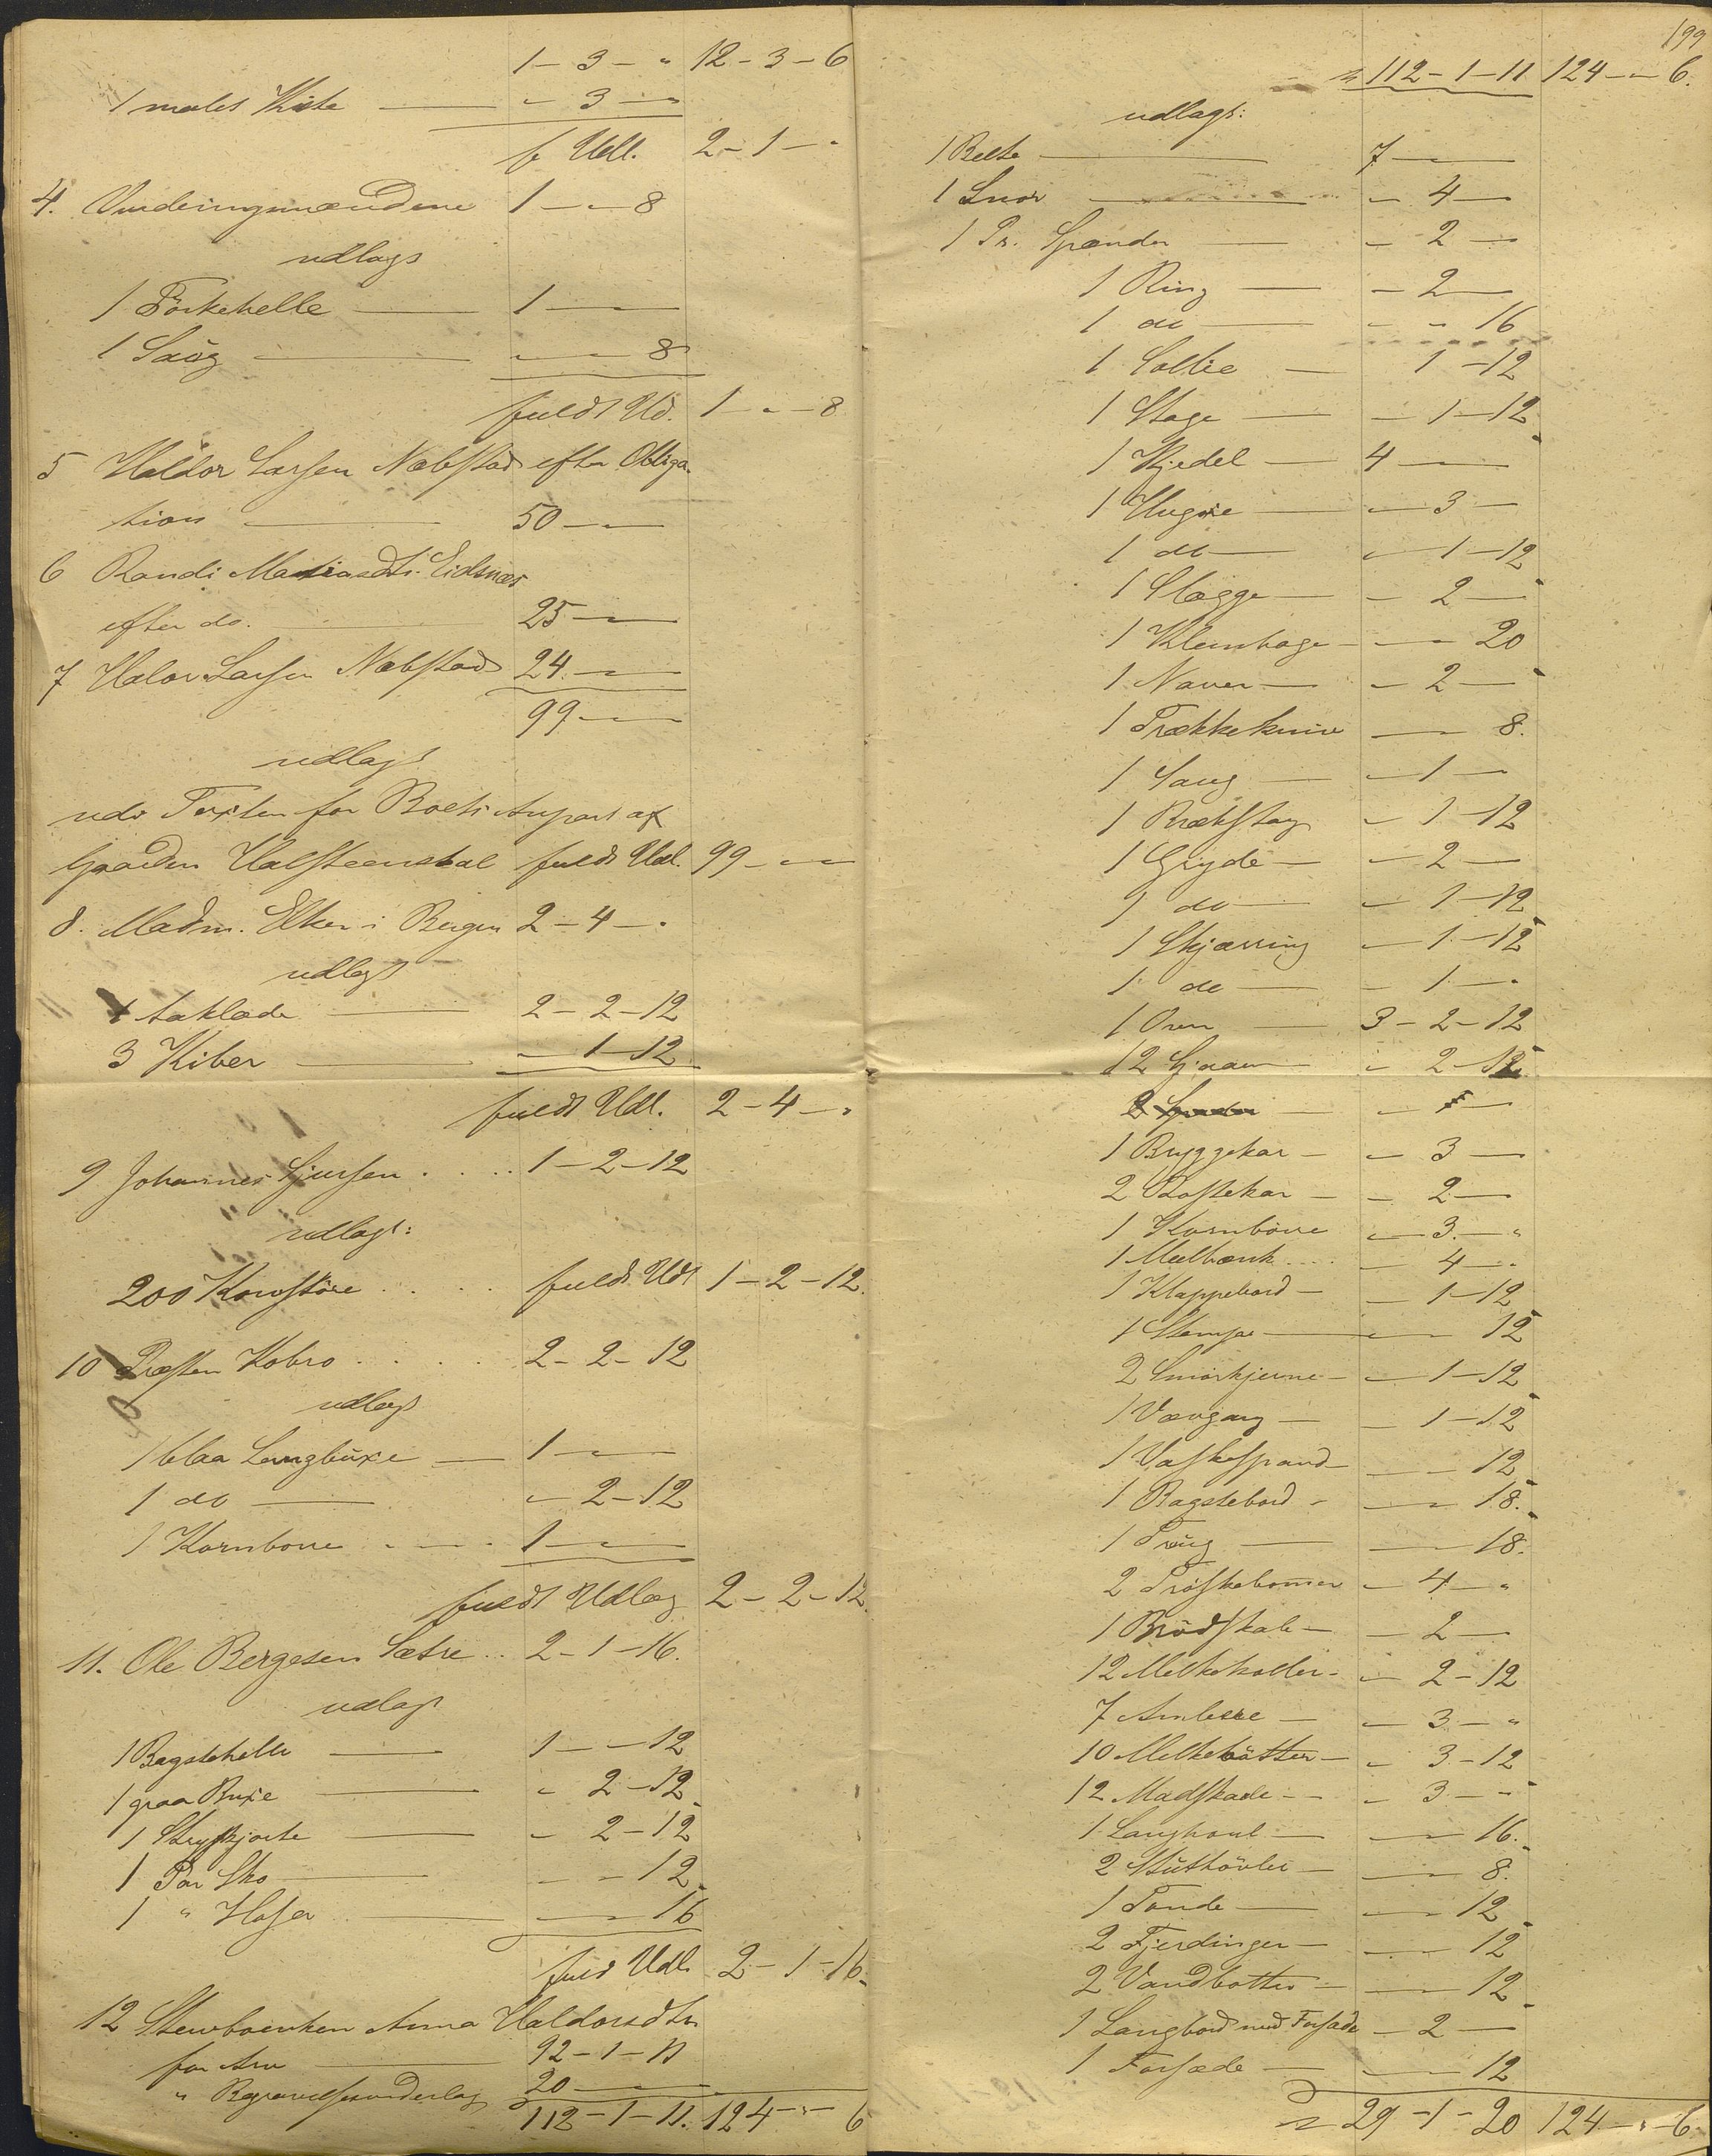 1 - 3 - " 12 - 3 - 6
1 malet Kiste - 3 - "
f Udl. 2 - 1 - "
4. Vurderingsmændene 1 - " - 8
udlagt
1 Törkehelle 1 - " - "
1 Saug " - " - 8
fuldt Ud. 1 - " - 8
5 Haldor Larsen Nebstad efter Obliga-
tion 50 - " - "
6 Randi Madiasdtr. Eidsnæs
efter do. 25 - " - "
7 Halor Larsen Nebstad 24 - " - "
99 - " - "
udlagt
udi Texten for Boets Anpart af
Gaarden Halsteensdal fuldt Udl. 99 - " - "
8. Madm. Elker i Bergen 2 - 4 - "
udlagt
1 Aaklæde 2 - 2 - 12
3 Kiber " - 1 - 12
fuldt Udl. 2 - 4 - "
9 Johannes Sjursen .... 1 - 2 - 12
udlagt:
200 Kornstöre .... fuldt Udl 1 - 2 - 12.
10 Præsten Kobro .... 2 - 2 - 12
udlagt
1 blaa Langbuxe 1 - " - "
1 do " - 2 - 12
1 Kornbörre 1 - " - "
fuldt Udlæg 2 - 2 - 12.
11. Ole Bergesen Sætre .. 2 - 1 - 16.
udlagt
1 Bagstehelle 1 - " - 12
1 graa Buxe " - 2 - 12
1 Strygkjorte " - 2 - 12
1 Par Sko " - " - 12
1 " Hoser " - " - 16
fuld Udl. 2 - 1 - 16.
12 Stervboenken Anna Haldorsdtr
for Arv 92 - 1 - 11
" Begravelsesvederlag 20 - " - "
112 - 1 - 11. 124 - " - 6
199
112 - 1 - 11 124 - " - 6.
udlagt:
1 Belte 7 - " - "
1 Snor " - 4 - "
1 Pr. Spænder " - 2 - "
1 Ring " - 2 - "
1 do " - " 16
1 Sollie 1 - 12
1 Stage " - 1 - 12
1 Kjedel 4 - " - "
1 Hugöxe " - 3 - "
1 do " - 1 - 12
1 Slægge " - 2 - "
1 Kleinhage " - " 20
1 Naver " - 2 - "
1 Trækkekniv " - " 8.
1 Saug " - 1 - "
1 Brækstang " - 1 - 12
1 Gryde " - 2 - "
1 do " - 1 - 12
1 Skjærring " - 1 - 12
1 do " - 1 - "
1 Oven 3 - 2 - 12
12 Gjraam " - 2 - 12
1 Bryggekar " - 3 - "
2 Rostekar " - 2 - "
1 Kornbörre " - 3 - "
1 Meelbænk .... " - 4 - "
1 Klappebord " - 1 - 12
1 Stampe " - " 12
2 Smörkjerne " - 1 - 12
1 Vævgang " - 1 - 12
1 Vaskespand " - " 12
1 Bagstebord " - " 18.
1 Trug " - " 18.
2 Tröskebommer " - 4 - "
1 Brödskab " - 2 - "
12 Melkekoller " - 2 - 12
7 Ambere " - 3 - "
10 Melkebötter " - 3 - 12
12 Madskade " - 3 - "
1 Langhövl " - " 16.
2 Stuthövler " - " 8.
1 Tönde " - " 12
2 Fjerdinger " - " 12
2 Vandbötter " - " 12
1 Langbord med Forsæde " - 2 - "
1 Forsæde " - " 12
29 - 1 - 20 124 - " - 6.